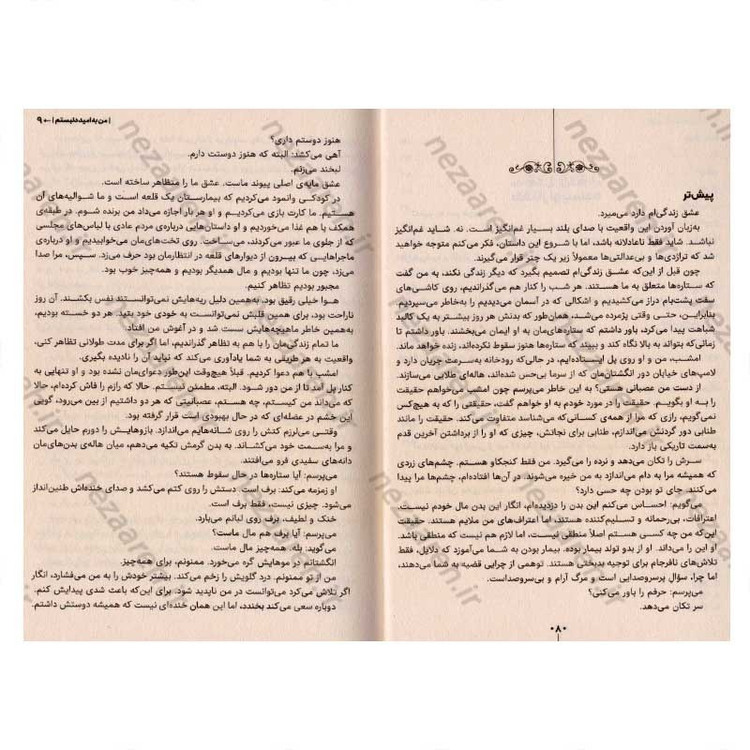 پیش‌تر
عشق زندگی‌ام دارد می‌میرد.
به‌زبان آوردن این واقعیت با صدای بلند بسیار غم‌انگیز است. نه. شاید غم‌انگیز
نباشد. شاید فقط ناعادلانه باشد، اما با شروع این داستان، فکر می‌کنم متوجه خواهید
شد که تراژدی‌ها و بی‌عدالتی‌ها معمولاً زیر یک چتر قرار می‌گیرند.
چون قبل از این‌که عشق زندگی‌ام تصمیم بگیرد که دیگر زندگی نکند، به من گفت
که ستاره‌ها متعلق به ما هستند. هر شب را کنار هم می‌گذراندیم، روی کاشی‌های
سفت پشت‌بام دراز می‌کشیدیم و اشکالی که در آسمان می‌دیدیم را به‌خاطر می‌سپردیم.
بنابراین، حتی وقتی پژمرده می‌شد، همان‌طور که بدنش هر روز بیشتر به یک کالبد
شباهت پیدا می‌کرد، باور داشتم که ستاره‌های‌مان به او ایمان می‌بخشند. باور داشتم تا
زمانی‌که بتواند به بالا نگاه کند و ببیند که ستاره‌ها هنوز سقوط نکرده‌اند، زنده خواهد ماند.
امشب، من و او روی پل ایستاده‌ایم، در حالی‌که رودخانه به‌سرعت جریان دارد و
لامپ‌های خیابان دور انگشتان‌مان که از سرما بی‌حس شده‌اند، هاله‌ای طلایی می‌سازند.
از دست من عصبانی هستی؟ به این خاطر می‌پرسم چون امشب می‌خواهم حقیقت
را به او بگویم. حقیقت را در مورد خودم به او خواهم گفت، حقیقتی را که به هیچ‌کس
نمی‌گویم، رازی که مرا از همه‌ی کسانی‌که می‌شناسد متفاوت می‌کند. حقیقت را مانند
طنابی دور گردنش می‌اندازم، طنابی برای نجاتش، چیزی که او را از برداشتن آخرین قدم
به‌سمت تاریکی باز دارد.
سرش را تکان می‌دهد و نرده را می‌گیرد. من فقط کنجکاو هستم. چشم‌های زردی
که همیشه مرا به دام می‌اندازد به من خیره می‌شوند. در آن‌ها افتاده‌ام، چشم‌ها مرا پیدا
می‌کنند. جای تو بودن چه حسی دارد؟
می‌گویم: احساس می‌کنم این بدن را دزدیده‌ام، انگار این بدن مال خودم نیست.
اعترافات، بی‌رحمانه و تسلیم‌کننده هستند، اما اعتراف‌های من ملایم هستند. حقیقت
این‌که من چه کسی هستم اصلاً منطقی نیست، اما لازم هم نیست که منطقی باشد.
او این را می‌داند. او از بدو تولد بیمار بوده. بیمار بودن به شما می‌آموزد که دلایل، فقط
تلاش‌های نافرجام برای توجیه بدبختی هستند. توهمی از چرایی قضیه به شما می‌دهند،
اما چرا، سؤال پرسروصدایی است و مرگ آرام و بی‌سروصداست.
می‌پرسم: حرفم را باور می‌کنی؟
سر تکان می‌دهد.
۰۸۰
| من به امید دلبستم | ← ۹
هنوز دوستم داری؟
آهی می‌کشد: البته که هنوز دوستت دارم.
لبخند می‌زنم.
عشق مایه‌ی اصلی پیوند ماست. عشق ما را متظاهر ساخته است.
در کودکی وانمود می‌کردیم که بیمارستان یک قلعه است و ما شوالیه‌های آن
هستیم. ما کارت بازی می‌کردیم و او هر بار اجازه می‌داد من برنده شوم. در طبقه‌ی
همکف با هم غذا می‌خوردیم و او داستان‌هایی درباره‌ی مردم عادی با لباس‌های مجلسی
که از جلوی ما عبور می‌کردند، می‌ساخت. روی تخت‌های‌مان می‌خوابیدیم و او درباره‌ی
ماجراهایی که بیرون از دیوارهای قلعه در انتظارمان بود حرف می‌زد. سپس، مرا صدا
می‌زد، چون ما تنها بودیم و مال همدیگر بودیم و همه‌چیز خوب بود.
مجبور بودیم تظاهر کنیم.
هوا خیلی رقیق بود. به‌همین دلیل ریه‌هایش نمی‌توانستند نفس بکشند. آن روز
ناراحت بود، برای همین قلبش نمی‌توانست به خودی خود بتپد. هر دو خسته بودیم،
به‌همین خاطر ماهیچه‌هایش سست شد و در آغوش من افتاد.
ما تمام زندگی‌مان را با هم به تظاهر گذراندیم، اما اگر برای مدت طولانی تظاهر کنی،
واقعیت به هر طریقی به شما یادآوری می‌کند که نباید آن را نادیده بگیری.
امشب با هم دعوا کردیم. قبلاً هیچ‌وقت این‌طور دعوای‌مان نشده بود و او تنهایی به
کنار پل آمد تا از من دور شود. البته، مطمئن نیستم. حالا که رازم را فاش کرده‌ام، حالا
که می‌داند من کیستم، چه هستم، عصبانیتی که هر دو داشتیم از بین می‌رود، گویی
این خشم در عضله‌ای که در حال بهبودی است قرار گرفته بود.
وقتی می‌لرزم کتش را روی شانه‌هایم می‌اندازد. بازوهایش را دورم حایل می‌کند
و مرا به‌سمت خود می‌کشاند. به بدن گرمش تکیه می‌دهم، میان هاله‌ی بدن‌های‌مان
دانه‌های سفیدی فرو می‌افتند.
می‌پرسم: آیا ستاره‌ها در حال سقوط هستند؟
او زمزمه می‌کند: برف است. دستش را روی کتم می‌کشد و صدای خنده‌اش طنین‌انداز
می‌شود. چیزی نیست، فقط برف است.
خنک و لطیف، برف روی لبانم می‌بارد.
می‌پرسم: آیا برف هم مال ماست؟
می‌گوید: بله. همه‌چیز مال ماست.
انگشتانم در موهایش گره می‌خورد. ممنونم، برای همه‌چیز.
من از تو ممنونم. درد گلویش را زخم می‌کند. بیشتر خودش را به من می‌فشارد، انگار
اگر تلاش می‌کرد می‌توانست در من ناپدید شود. برای این‌که باعث شدی پیدایش کنم.
دوباره سعی می‌کند بخندد، اما این همان خنده‌ای نیست که همیشه دوستش داشتم.
nezaare.ir